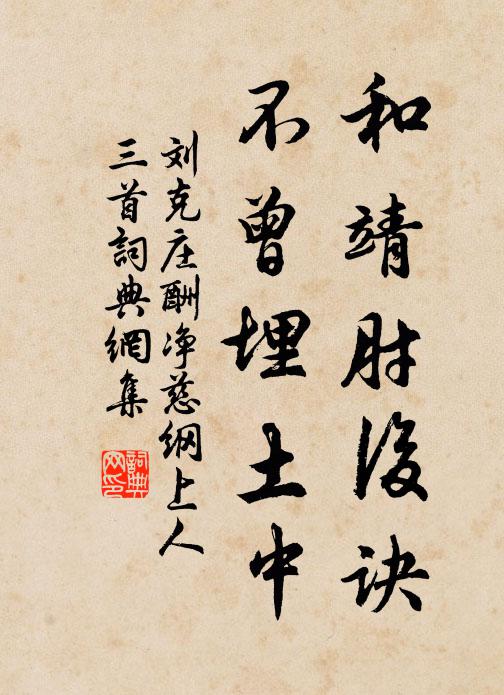 和靖肘後訣
不曾埋土中
刘克庄酬净慈綱上人
三首詞典網集
詞典網印